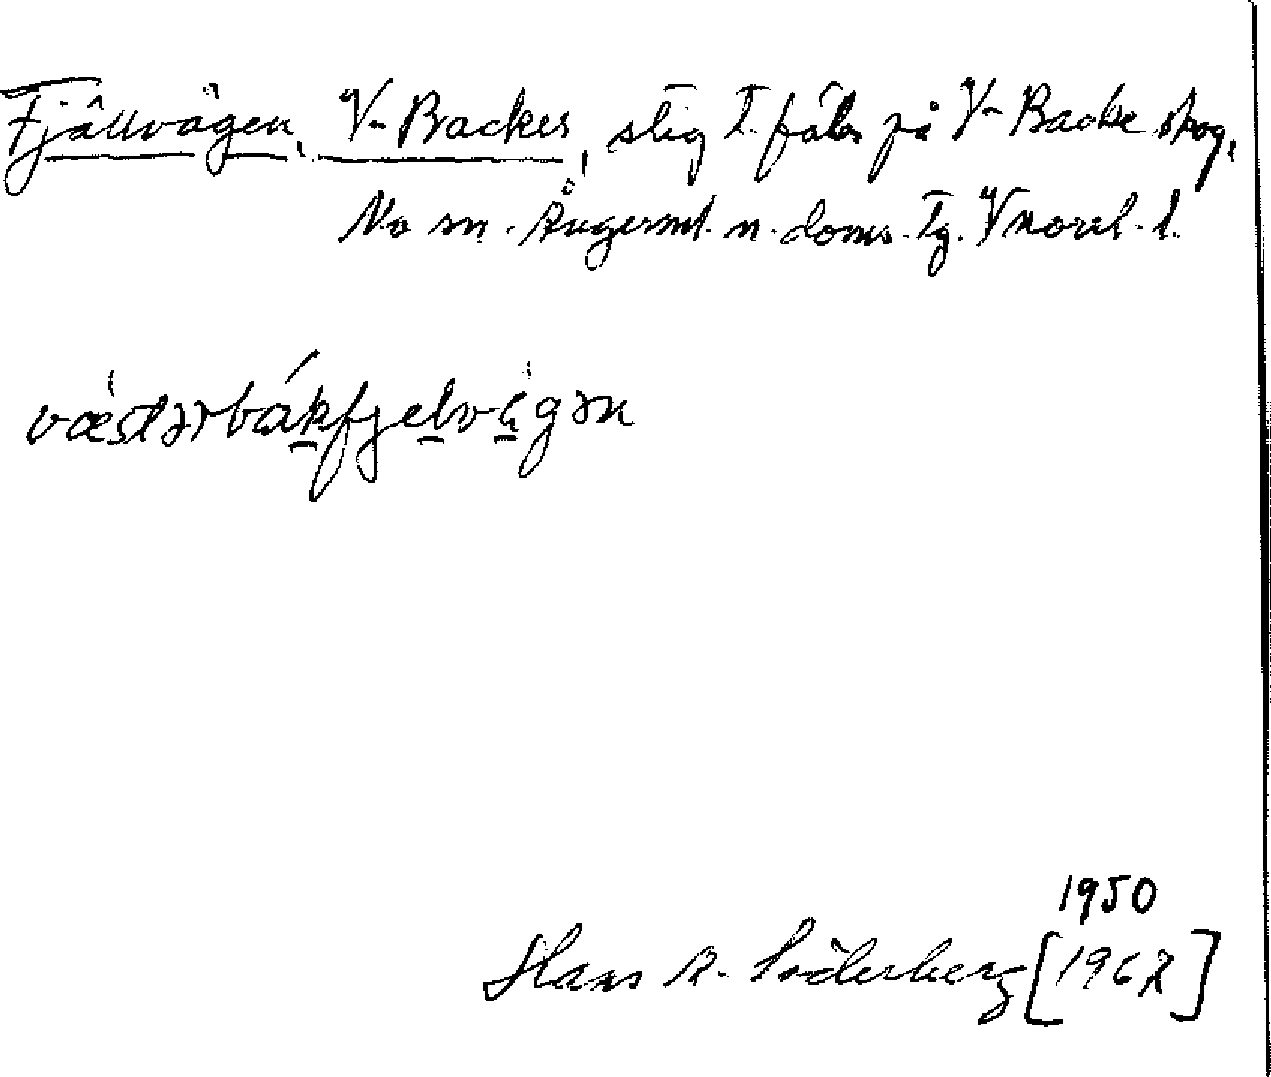 Fjällvägen, V-Backes, stig t. fäbo på V-Backe skog,
No sn. Ångerml. n. doms. tg. Vnorrl. l.
væ̀stərbákfjelvägən
1950
Hans A. Söderberg [1967]